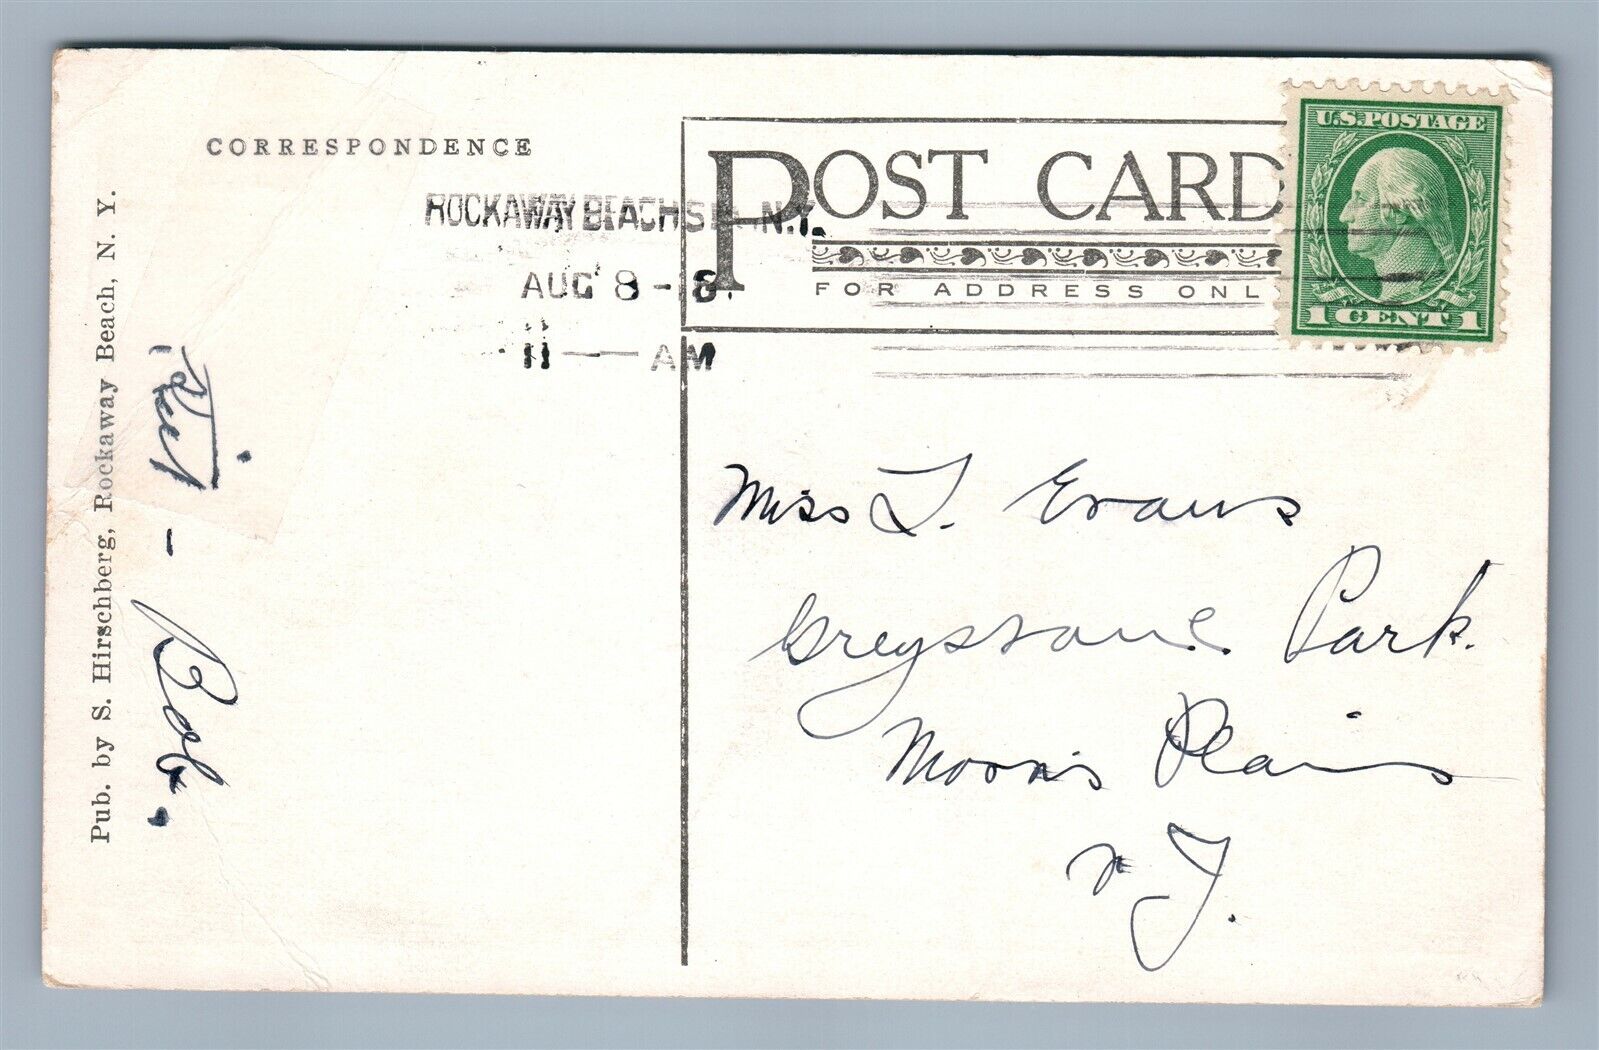 CORRESPONDENCE
POST CARD
FOR ADDRESS ONLY
U.S. POSTAGE
1 CENT 1
ROCKAWAY BEACH N.Y.
AUG 8 -
11 — AM
Pub. by S. Hirschberg, Rockaway Beach, N. Y.
- Bob.
Miss L. Evans
Greystone Park.
Morris Plains
N J.